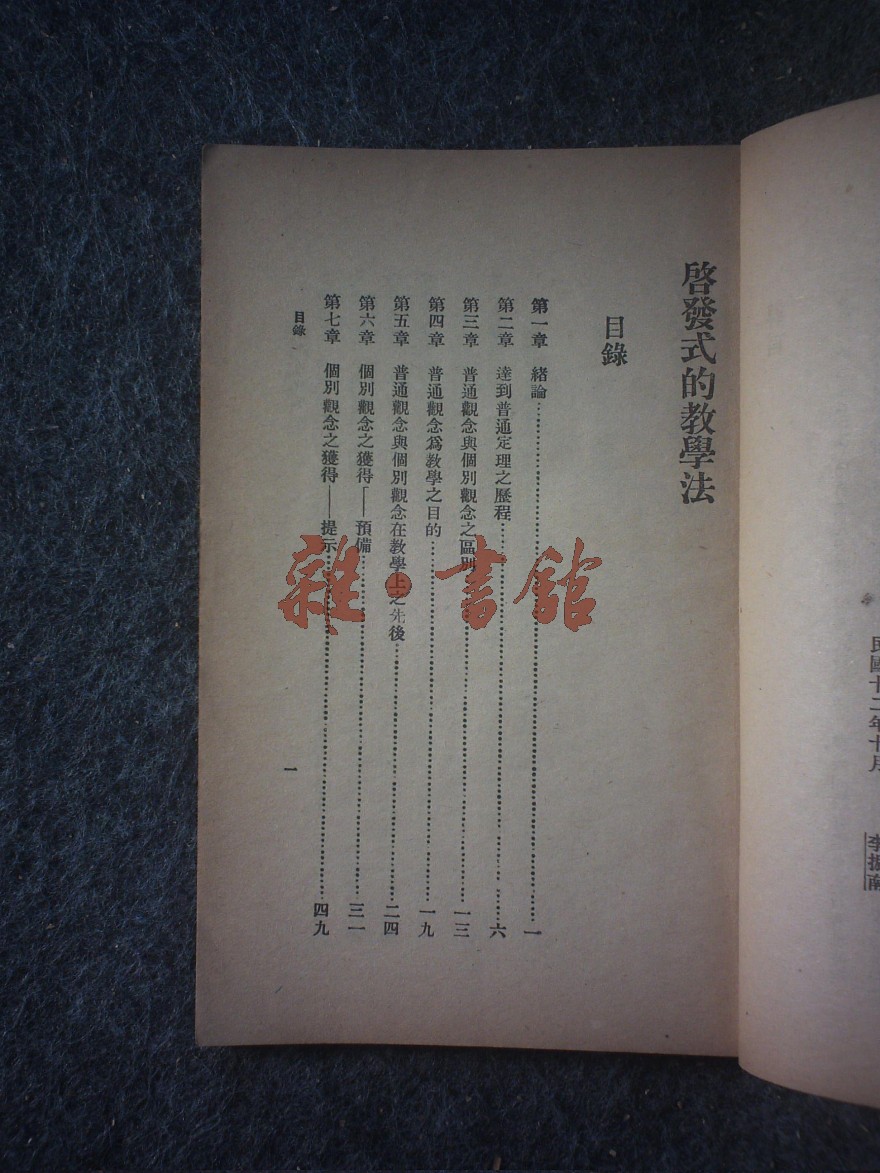 民國十二年十月
李振南
啓發式的教學法
目錄
第一章 緒論……一
第二章 達到普通定理之歷程……六
第三章 普通觀念與個別觀念之區別……一三
第四章 普通觀念爲教學之目的……一九
第五章 普通觀念與個別觀念在教學上之先後……二四
第六章 個別觀念之獲得「——預備……三一
第七章 個別觀念之獲得——提示……四九
目錄
一
雜·書館